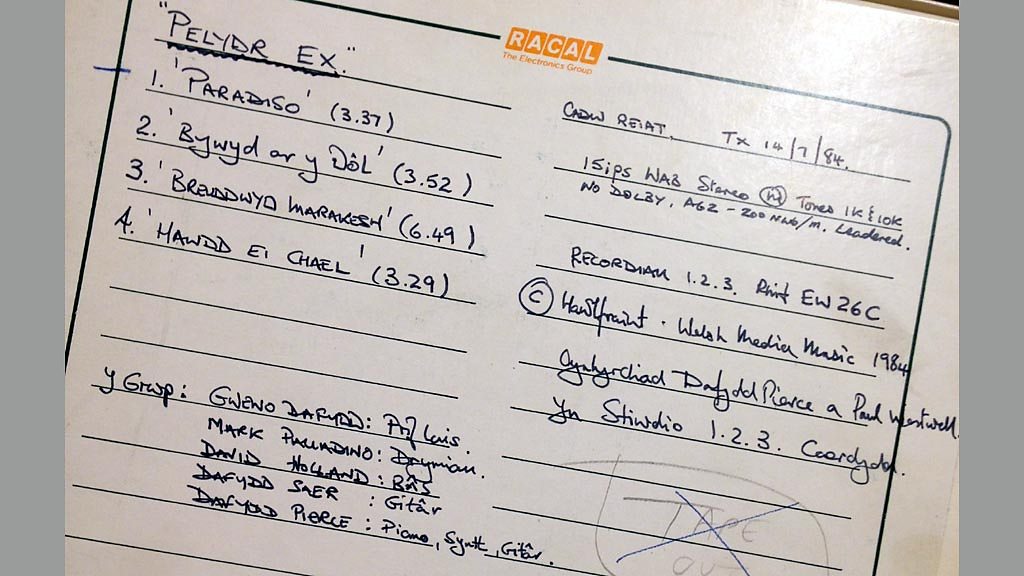 "PELYDR EX."
1. 'PARADISO' (3.37)
2. 'Bywyd ar y Dôl' (3.52)
3. 'BREUDDWYD MARAKESH' (6.49)
4. 'HAWDD EI CHAEL' (3.29)
y Grwp: GWENO DAFYDD: Prif Lais.
MARK PALLADINO: Drymiau.
DAVID HOLLAND: Bâs
DAFYDD SAER : Gitâr
DAFYDD PIERCE: Piano, Synth, Gitâr.
RACAL
The Electronics Group
CADW REIAT. Tx 14/7/84.
15ips NAB Stereo Tones 1K & 10K
NO DOLBY. AGZ - 200 NWb/m. Leadered.
RECORDIAU 1.2.3. Rhif EW26C
© Hawlfraint. Welsh Media Music 1984
Cynhyrchiad Dafydd Pierce a Paul Westwell.
Yn Stiwdio 1.2.3. Caerdydd.
TAPE
OUT